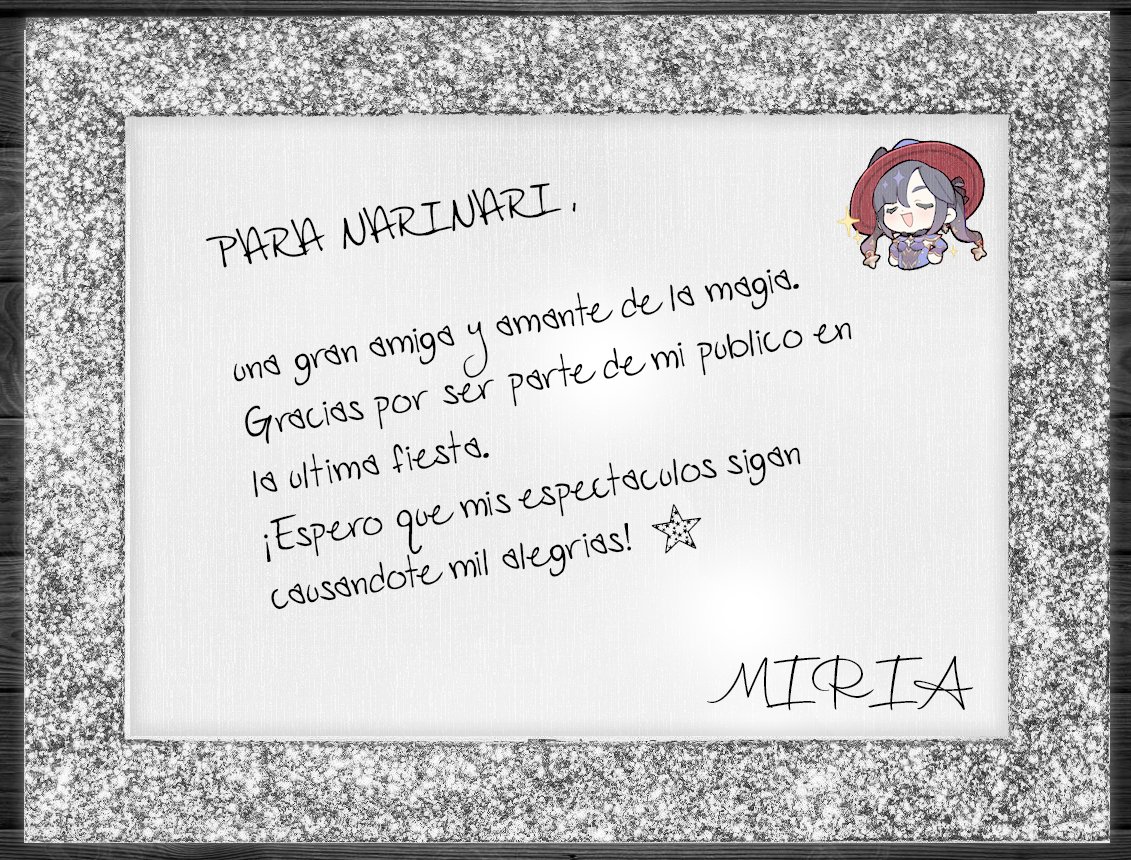 PARA NARINARI,
una gran amiga y amante de la magia.
Gracias por ser parte de mi publico en
la ultima fiesta.
¡Espero que mis espectaculos sigan
causandote mil alegrias!
MIRIA